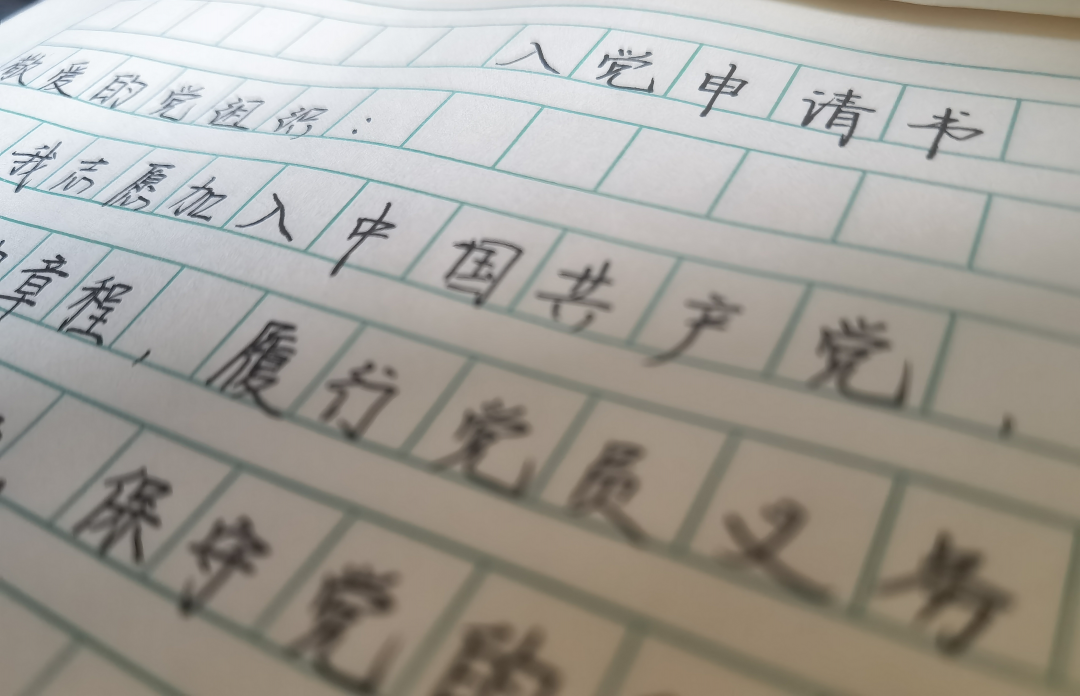 入党申请书
敬爱的党组织:
我志愿加入中国共产党,
章程,履行党员义务
保守党的